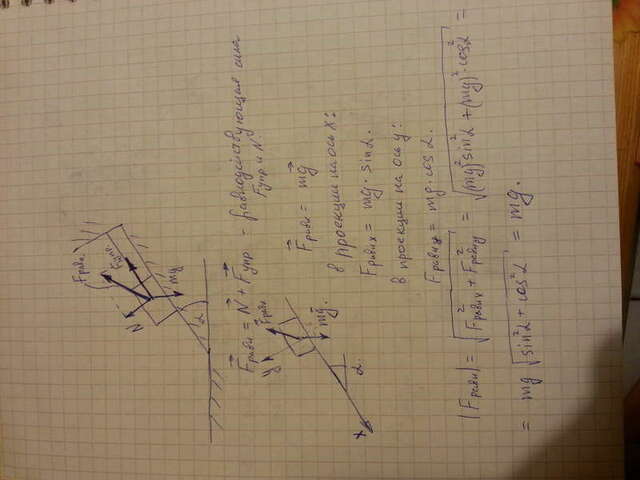 N
Fравн.
Fупр
mg
α
F⃗равн = N⃗ + F⃗упр - равнодействующая сила
Fупр и N⃗
y
Fравн
mg
x
α
F⃗равн = mg⃗
в проекции на ось x:
Fравн x = mg · sin α.
в проекции на ось y:
Fравн y = mg · cos α.
|Fравн| = √(F²равн x + F²равн y) = √((mg)² sin²α + (mg)² · cos²α) =
= mg √(sin²α + cos²α) = mg.